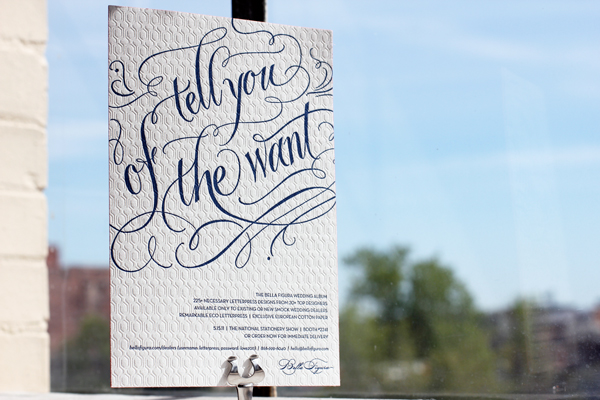 tell you
of the want
THE BELLA FIGURA WEDDING ALBUM
225+ NECESSARY LETTERPRESS DESIGNS FROM 20+ TOP DESIGNERS
AVAILABLE ONLY TO EXISTING OR NEW SMOCK WEDDING DEALERS
REMARKABLE ECO LETTERPRESS | EXCLUSIVE EUROPEAN COTTON PAPER
5.15.11 | THE NATIONAL STATIONERY SHOW | BOOTH
OR ORDER NOW FOR IMMEDIATE DELIVERY
bellafigura.com/dealers (username: letterpress, password:
hello@bellafigura.com
Bella Figura